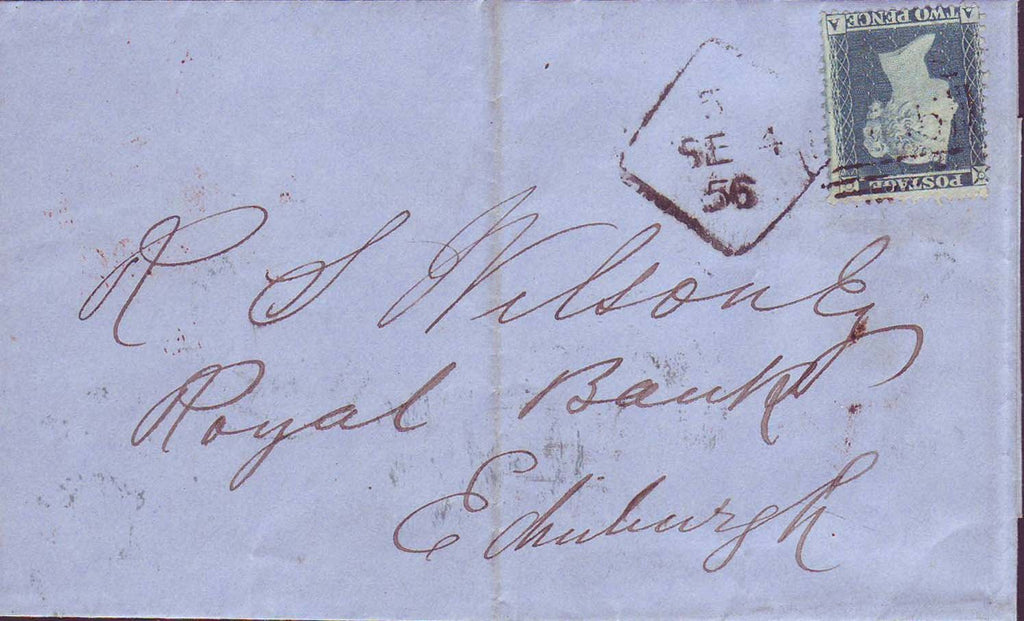 A TWO PENCE A
POSTAGE
5
SE 4
56
R S Wilson Esq
Royal Bank
Edinburgh